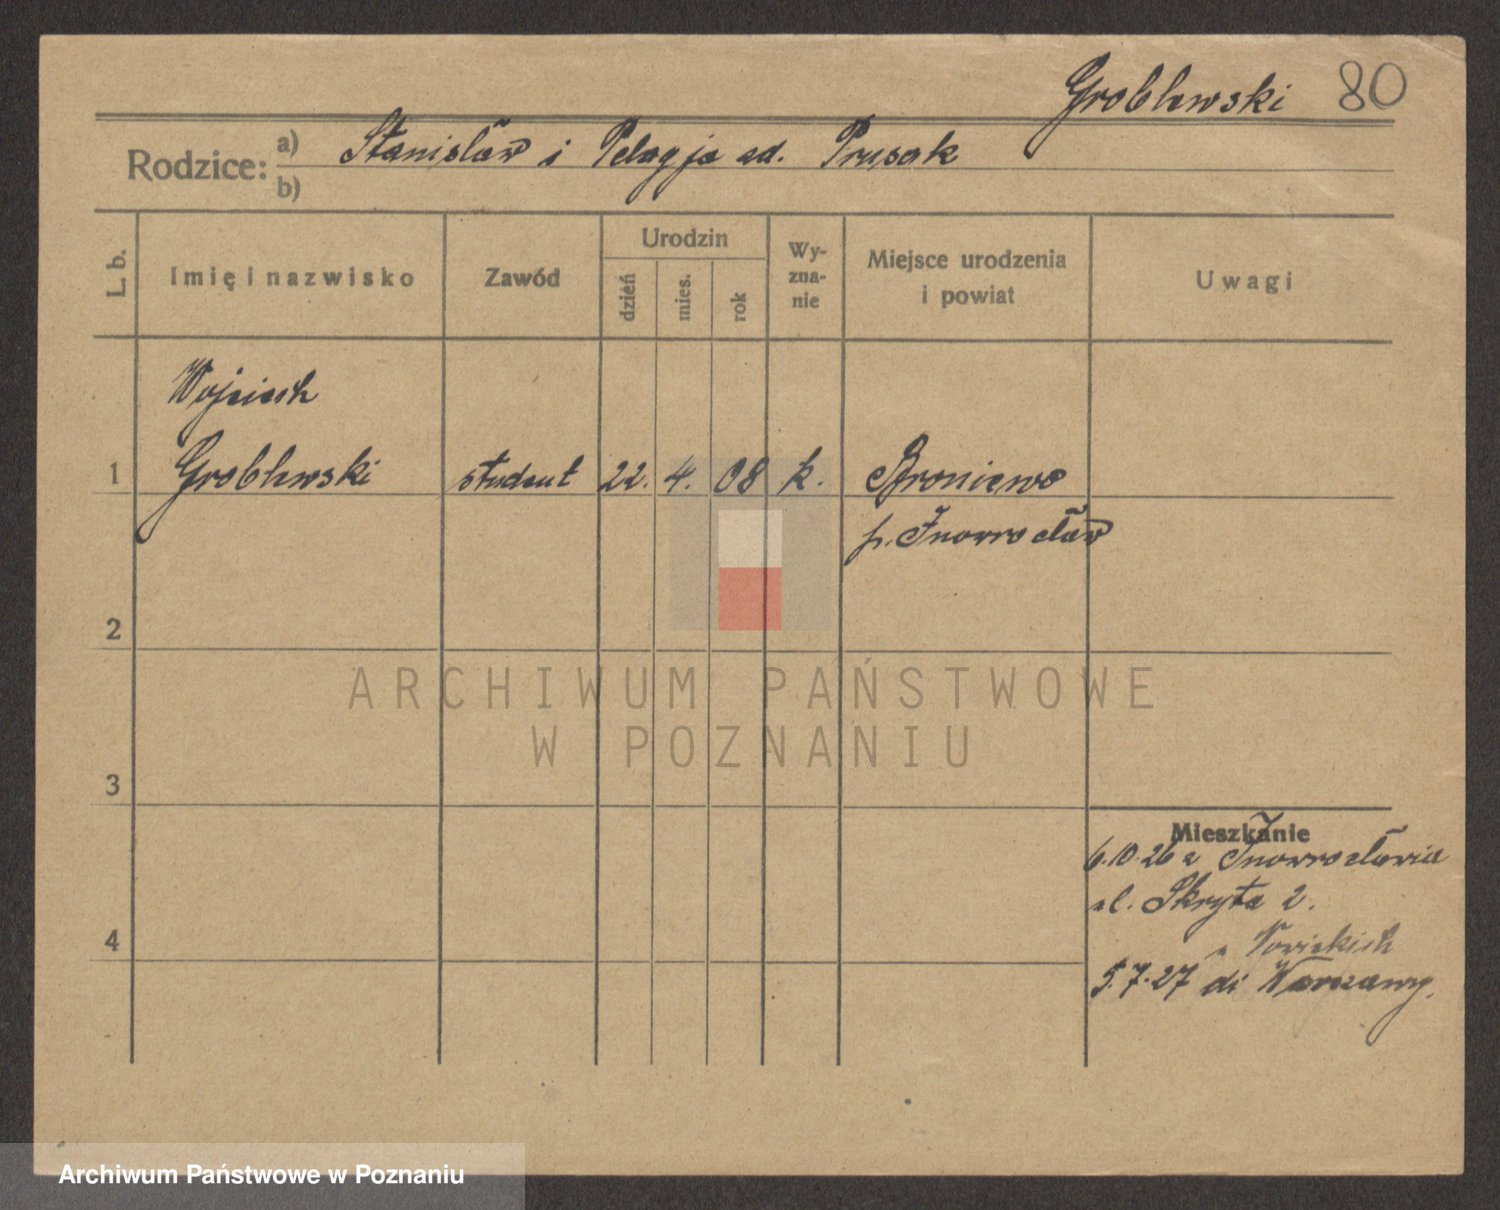 Groblewski 80
Rodzice: a) Stanisław i Pelagja ad. Prusak
b)
L. b. Imię i nazwisko Zawód Urodzin dzień mies. rok Wyznanie Miejsce urodzenia i powiat Uwagi
Wojciech
1 Groblewski student 22. 4. 08 k. Broniewo
p. Inowrocław
2
ARCHIWUM PAŃSTWOWE
W POZNANIU
3
Mieszkanie
6.10.26 z Inowrocławia
ul. Skryta 2.
4
5.7.27 do Warszawy.
Archiwum Państwowe w Poznaniu